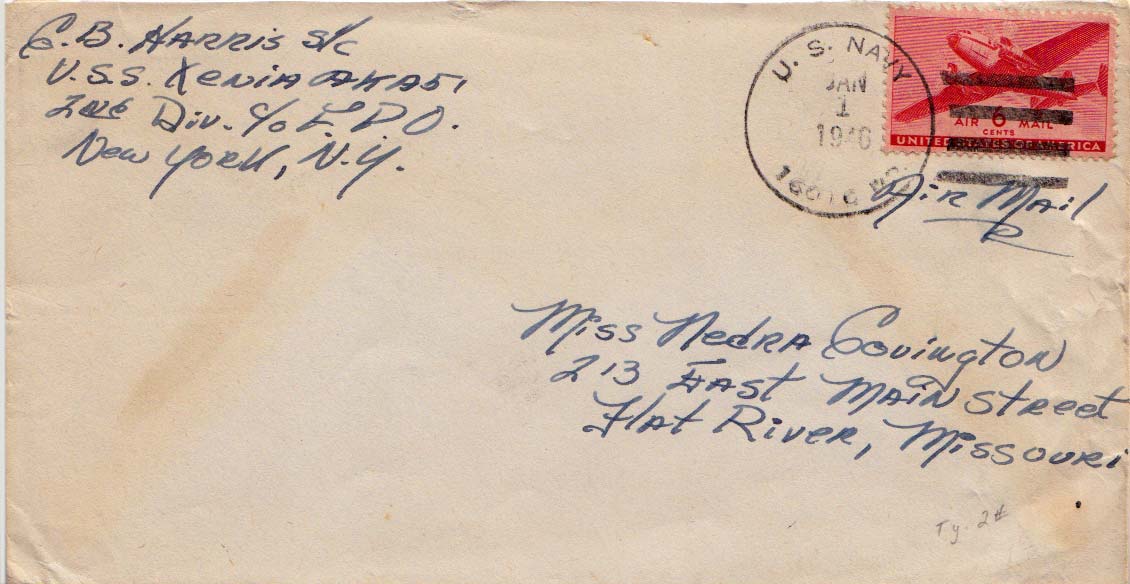 C. B. HARRIS S/c
U.S.S. Xenia AKA 51
2nd Div. c/o F P O.
New York, N.Y.
U. S. NAVY
JAN
1
1946
AIR 6 MAIL
CENTS
UNITED STATES OF AMERICA
Air Mail
Miss Nedra Covington
213 East Main Street
Flat River, Missouri
Ty. 2#